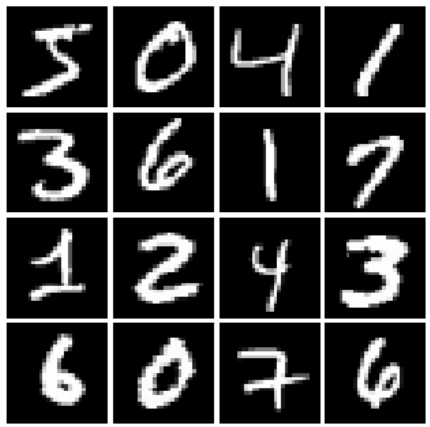 5 0 4 1
3 6 1 7
1 2 4 3
6 0 7 6